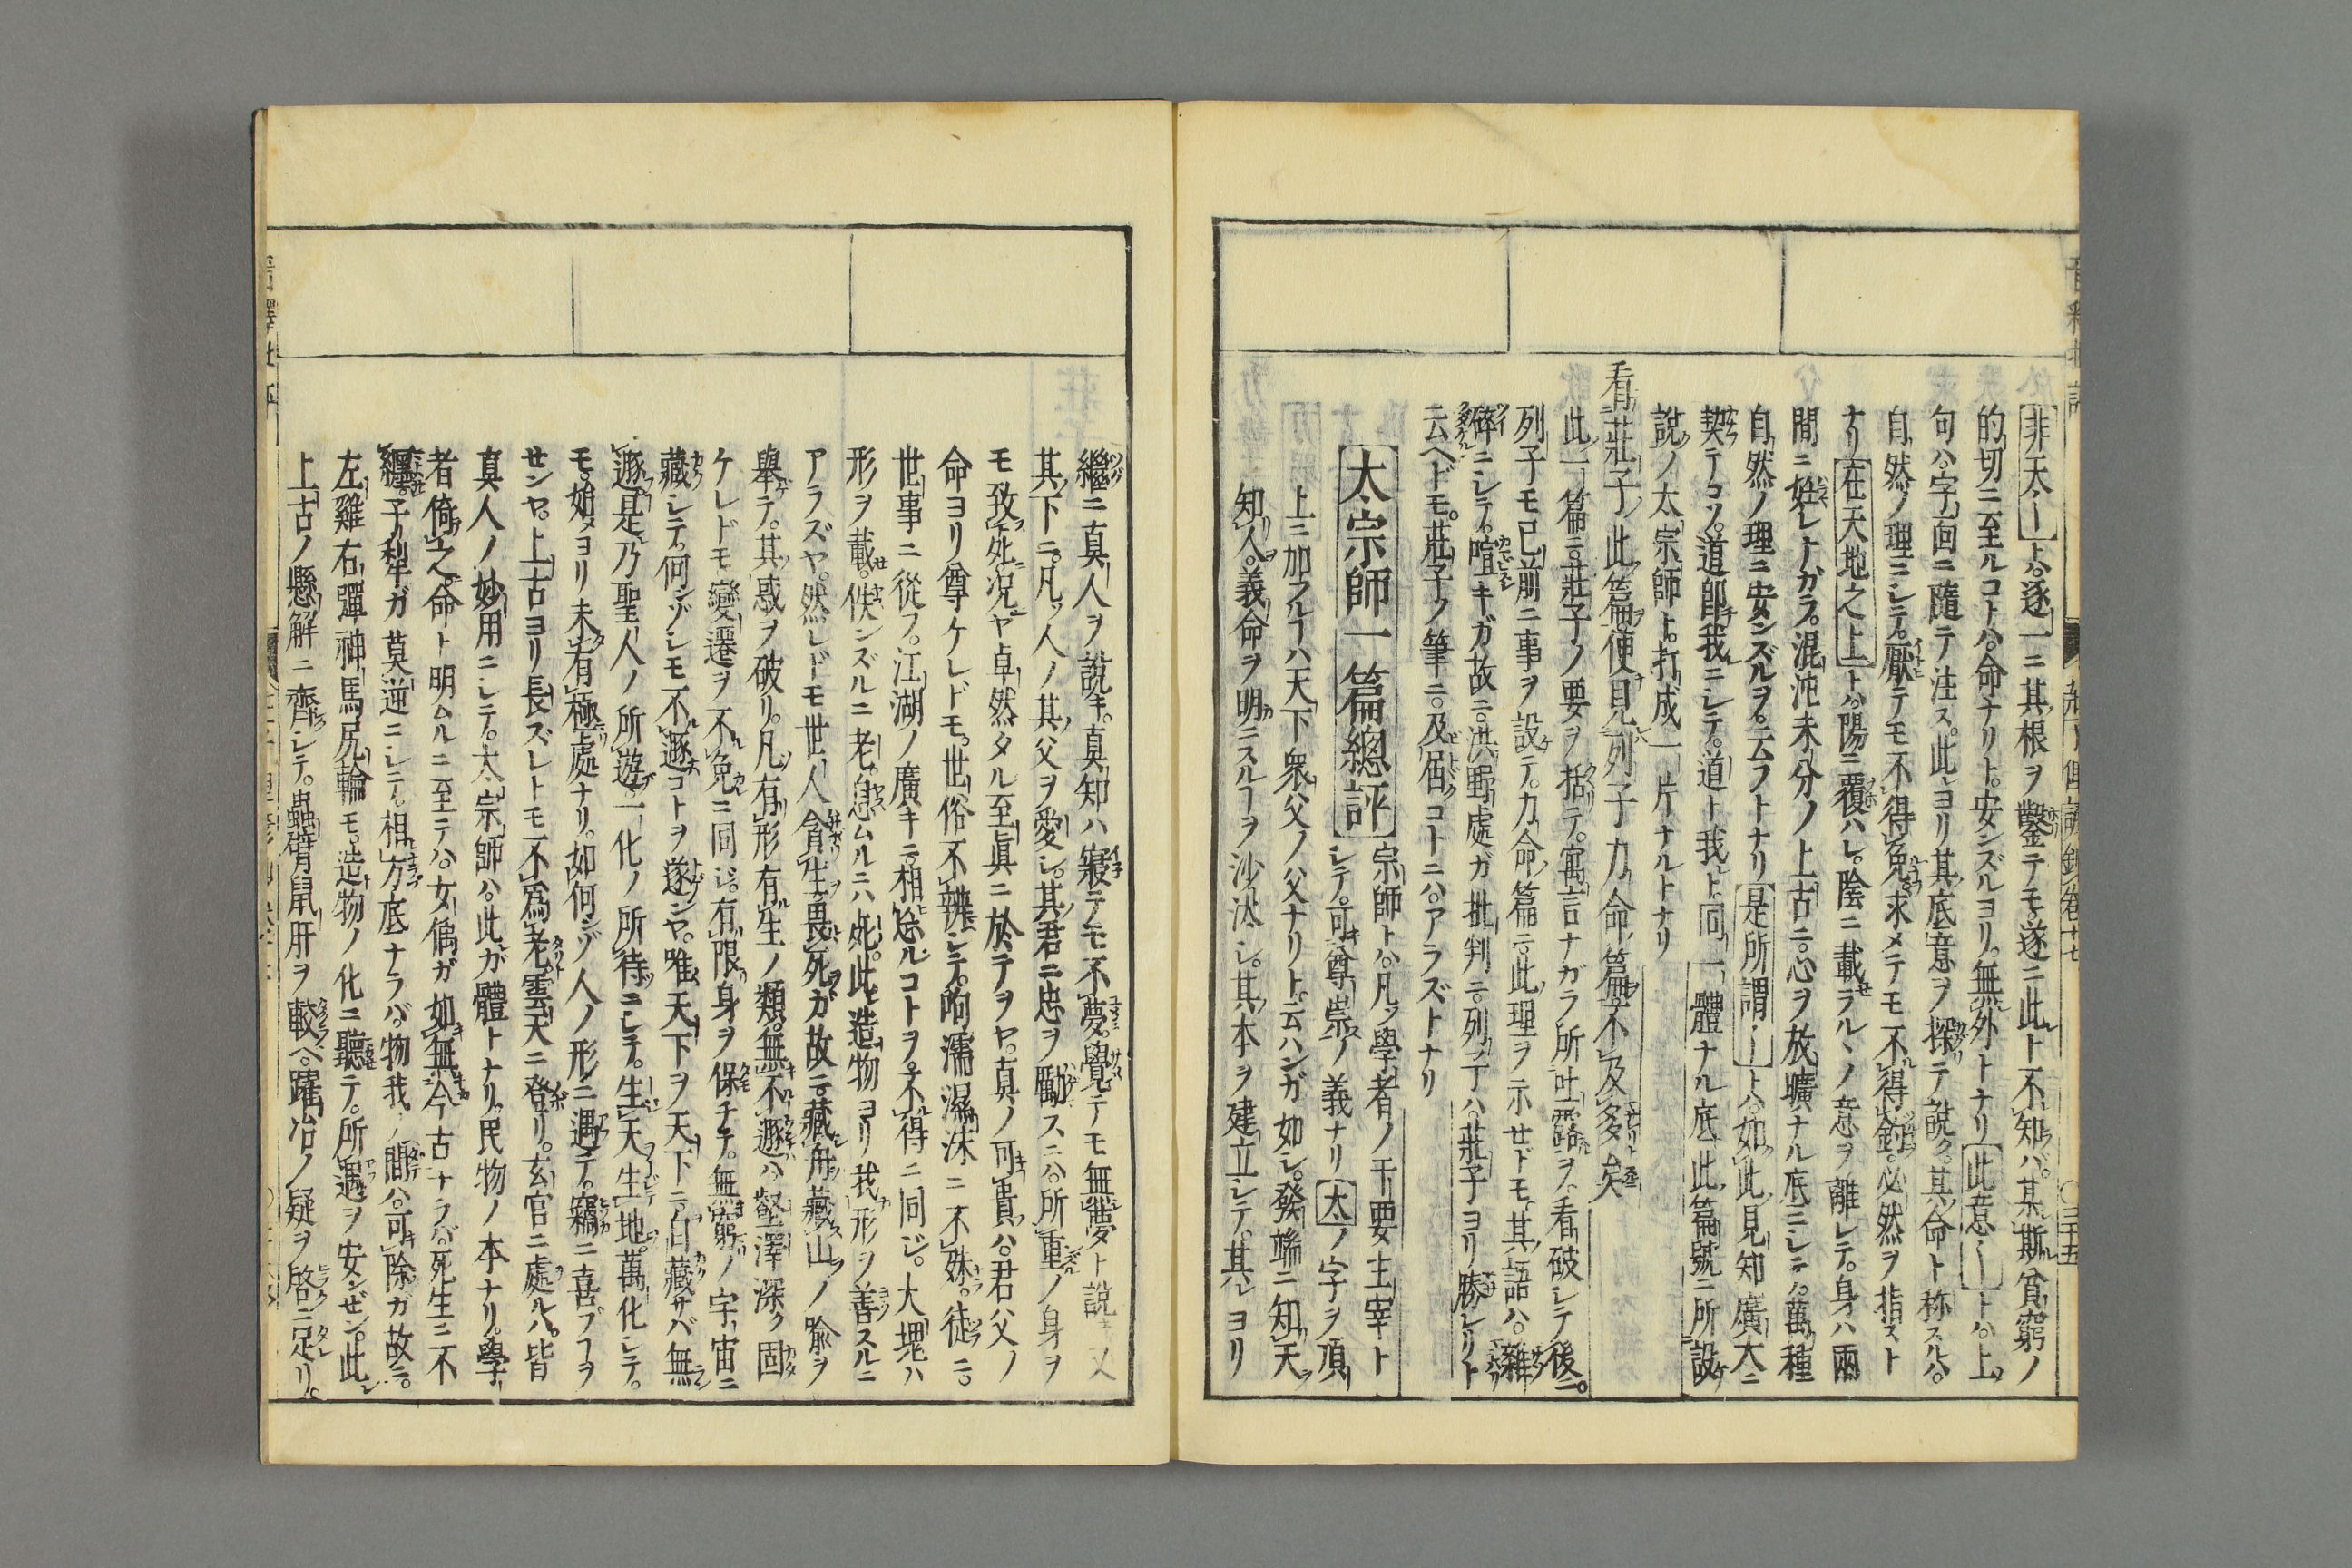 非天ーートハ。逐一ニ其根ヲ鑿テモ。遂ニ此ト不知ラバ。某斯貧窮ノ
的切ニ至ルコトハ。命ナリト。安ンズルヨリ。無外トナリ此意ーートハ。上
句ハ。字面ニ隨テ注ス。此ヨリ其底意ヲ探テ説ク。其命ト称スルハ。
自然ノ理ニシテ。厭テモ不得免。求メテモ不得。必然ヲ指スト
ナリ在天地之上トハ。陽ニ覆ハレ。陰ニ載ラルヽノ意ヲ離レテ。身ハ兩
間ニ處シナガラ。混沌未分ノ上古ニ。心ヲ放曠ナル底ニシテ。萬種
自然ノ理ニ安ンズルヲ。云フトナリ是所謂ーートハ。如此見知廣大ニ
契テコソ。道即我ニシテ。道ト我ト同一體ナル底。此篇號ニ所設
說ノ太宗師ト。打成一片ナルトナリ
看莊子此篇。便見列子力命篇。不及多矣
此一篇ニ。莊子ノ要ヲ括リテ。寓言ナガラ所吐露ヲ。看破シテ後ニ。
列子モ已前ニ事ヲ設テ。力命篇ニ。此理ヲ示セドモ。其語ハ。雜
碎ニシテ。喧キガ故ニ。洪野處ガ批判ニ。列子ハ。莊子ヨリ勝レリト
云ヘドモ。莊子ノ筆ニ。及屆コトニハ。アラズトナリ
太宗師一篇總評 宗師トハ。凡ソ學者ノ于要主宰ト
シテ。可尊崇ノ義ナリ太ノ字ヲ頂
上ニ加フルハ天下衆父ノ父ナリト。云ハンガ如シ。發端ニ知天
知人。義命ヲ明ニスルヿヲ沙汰シ。其本ヲ建立シテ。其レヨリ
繼ニ真人ヲ說キ。真知ハ寢テモ不夢。覺テモ無夢ト說キ又
其下ニ。凡ソ人ノ其父ヲ愛シ。其君ニ忠ヲ勵スニハ。所重ノ身ヲ
モ致死。況ヤ卓然タル至眞ニ於テヲヤ。真ノ可貴ハ。君父ノ
命ヨリ尊ケレドモ。世俗不辨シテ。呴濡濕沫ニ不殊。徒ニ。
世事ニ從フ。江湖ノ廣キニ。相忘ルコトヲ。不得ニ同ジ。大塊ハ
形ヲ載。佚ンズルニ老。息ムルニハ死。此造物ヨリ我形ヲ善スルニ
アラズヤ。然レドモ世人貪生畏死ガ故ニ。藏舟藏山ノ喩ヲ
舉テ。其惑ヲ破リ。凡有形有生ノ類。無不遯ハ。壑澤深ク固
ケレドモ變遷ヲ不免ニ同ジ。有限身ヲ保チテ。無窮ノ宇宙ニ
藏シテ。何ゾシモ不遯コトヲ遂ンヤ。唯天下ヲ天下ニ。自藏サバ無
遯。是乃聖人ノ所遊。一化ノ所待ニシテ。生天生地。萬化シテ。
モ。始ヨリ未有極處ナリ。如何ゾ人ノ形ニ遇テ。竊ニ喜ブヿヲ
センヤ。上古ヨリ長ズレトモ不爲老。雲天ニ登リ。玄宮ニ處ルハ。皆
真人ノ妙用ニシテ。太宗師ハ。此ガ體トナリ。民物ノ本ナリ。學
者倚之。命ト明ムルニ至テハ。女偊ガ如無今古ナラバ。死生ニ不
纏。子犁ガ莫逆ニシテ。相方底ナラバ。物我ノ間ハ。可除ガ故ニ。
左雞右彈神馬尻輪モ。造物ノ化ニ聽テ。所遇ヲ安ンゼン。此レ
上古ノ懸解ニ齊シテ。蟲臂鼠肝ヲ較ベ。躍冶ノ疑ヲ啓ニ足リ。